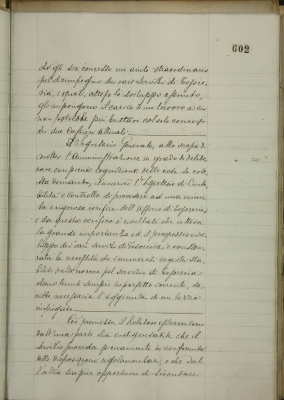 602
chè gli sia concesso un aiuto straordinario
pel disimpegno dei vari Servizi di Tesore-
ria, i quali, atteso lo sviluppo assunto,
gli impongono il carico di un lavoro a cui
non potrebbe più bastare col solo concorso
dei due Commessi attuali.
Il Segretario Generale, allo scopo di
mettere l'Amministrazione in grado di delibe-
rare con piena cognizione della cosa la
domanda, incaricò l'Ispettore di Conta-
bilità e controllo di procedere ad una minu-
ta ingerenza verifica dell'Ufficio di Tesoreria;
e da questa verifica è risultato che, attesa
la grande importanza ed il progressivo svi-
luppo dei vari Servizi di Tesoreria, e conside-
rata la necessità che i numerosi registri sta-
biliti dalle norme pel servizio di Tesoreria
siano tenuti sempre in perfetto corrente, sia
altro necessaria l'aggiunta di un terzo
impiegato.
Ciò premesso, il Relatore osserva come
dall'una parte sia indispensabile che il
servizio proceda pienamente in conformità
alle disposizioni regolamentari, e che dal-
l'altra sia pur opportuno di circondare